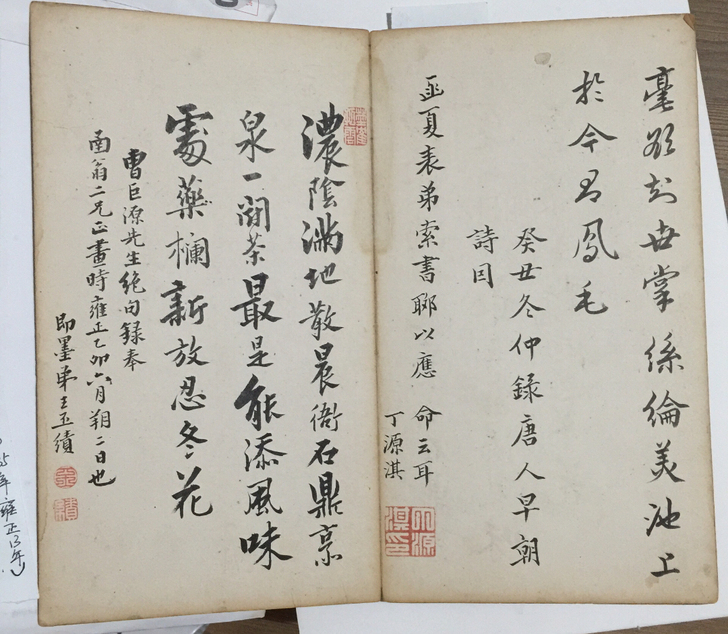 毫欲知世掌絲綸美池上
於今有鳳毛
癸丑冬仲録唐人早朝
詩因
亟夏表弟索書聊以應 命云耳
丁源淇
濃陰滿地散晨衙石鼎烹
泉一閒茶最是能添風味
處藥欄新放忍冬花
曹巨源先生絶句録奉
南翁二兄正畫時雍正乙卯六月朔二日也
即墨弟王玉績
年雍正13年